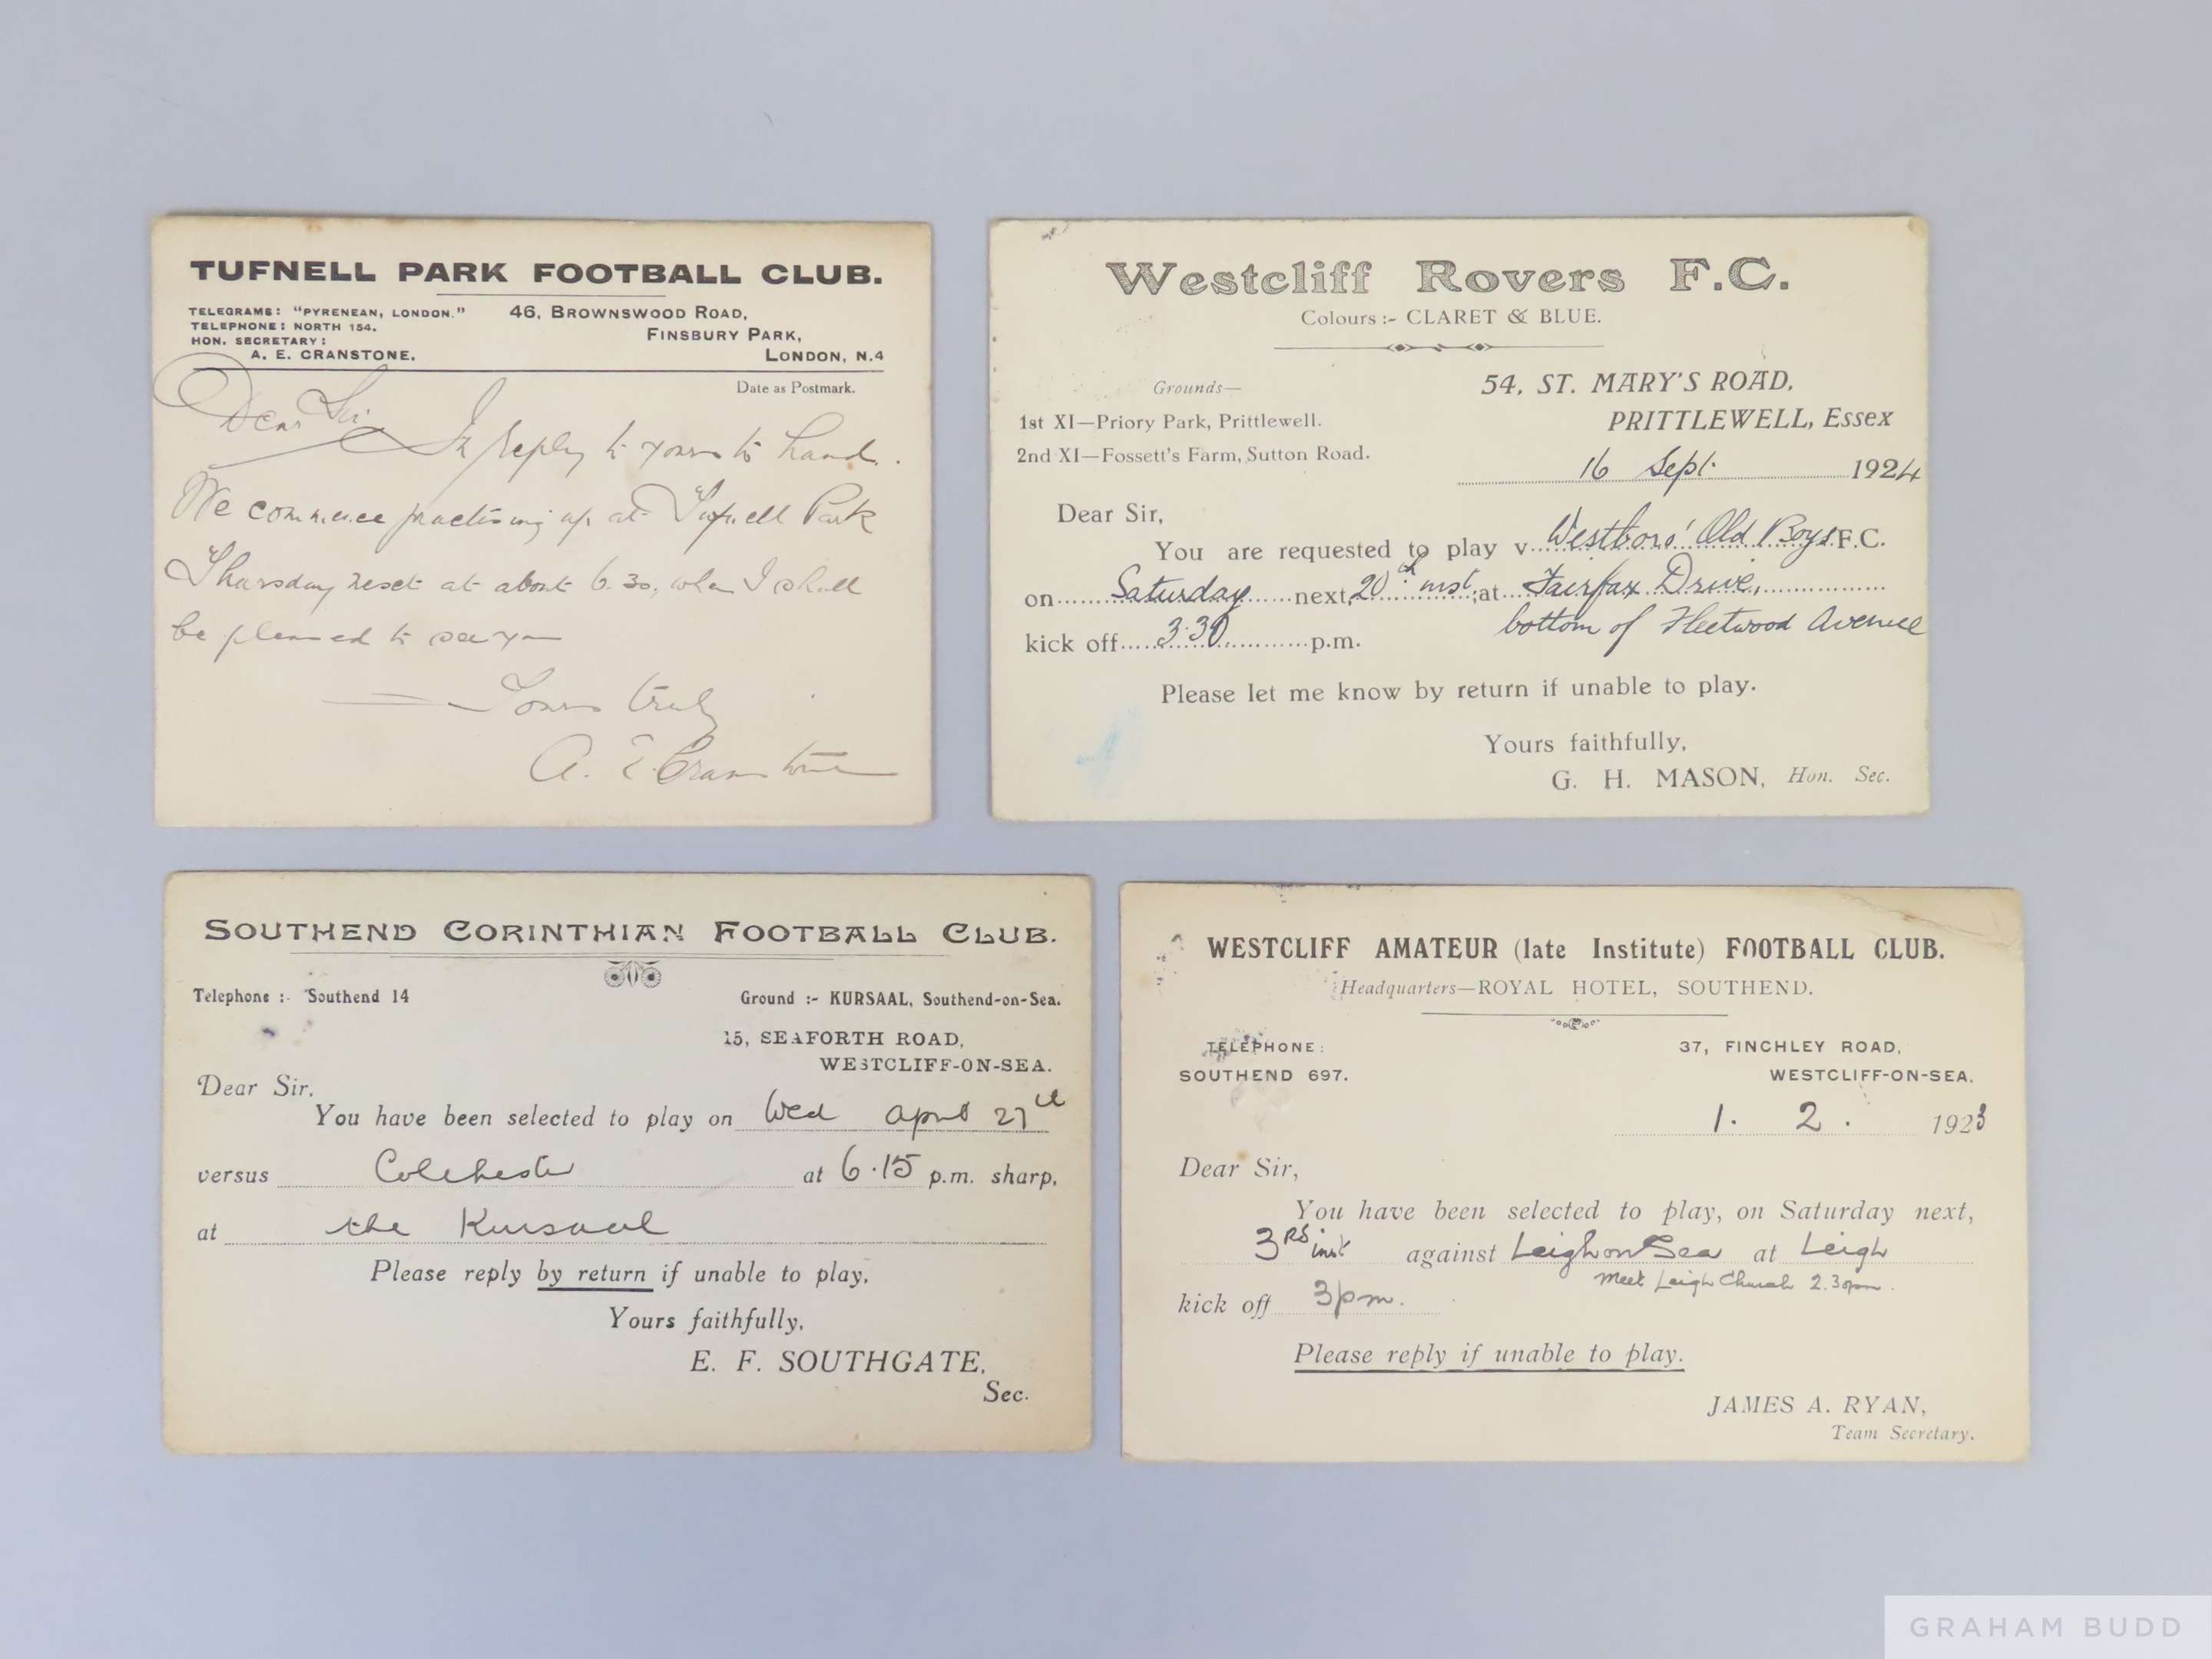 TUFNELL PARK FOOTBALL CLUB.
TELEGRAMS: "PYRENEAN, LONDON."
TELEPHONE: NORTH 154.
HON. SECRETARY:
A. E. CRANSTONE.
46, BROWNSWOOD ROAD,
FINSBURY PARK,
LONDON, N.4
Date as Postmark.
Dear Sir
In reply to yours to hand.
We commence practising up at Tufnell Park
Thursday next at about 6.30, when I shall
be pleased to see you
Yours truly
A. E. Cranstone
Westcliff Rovers F.C.
Colours :- CLARET & BLUE.
Grounds—
1st XI—Priory Park, Prittlewell.
2nd XI—Fossett's Farm, Sutton Road.
54, ST. MARY'S ROAD,
PRITTLEWELL, Essex
16 Sept. 1924
Dear Sir,
You are requested to play v. Westboro' Old Boys F.C.
on Saturday next, 20th inst, at Fairfax Drive,
bottom of Fleetwood Avenue
kick off 3.30 p.m.
Please let me know by return if unable to play.
Yours faithfully,
G. H. MASON, Hon. Sec.
SOUTHEND CORINTHIAN FOOTBALL CLUB.
Telephone :- Southend 14
Ground :- KURSAAL, Southend-on-Sea.
15, SEAFORTH ROAD,
WESTCLIFF-ON-SEA.
Dear Sir,
You have been selected to play on Wed April 27th
versus Colchester at 6.15 p.m. sharp,
at the Kursaal
Please reply by return if unable to play,
Yours faithfully,
E. F. SOUTHGATE,
Sec.
WESTCLIFF AMATEUR (late Institute) FOOTBALL CLUB.
Headquarters—ROYAL HOTEL, SOUTHEND.
TELEPHONE:
SOUTHEND 697.
37, FINCHLEY ROAD,
WESTCLIFF-ON-SEA.
1. 2. 1923
Dear Sir,
You have been selected to play, on Saturday next,
3RD inst against Leigh on Sea at Leigh
meet Leigh Church 2.30pm.
kick off 3pm.
Please reply if unable to play.
JAMES A. RYAN,
Team Secretary.
GRAHAM BUDD